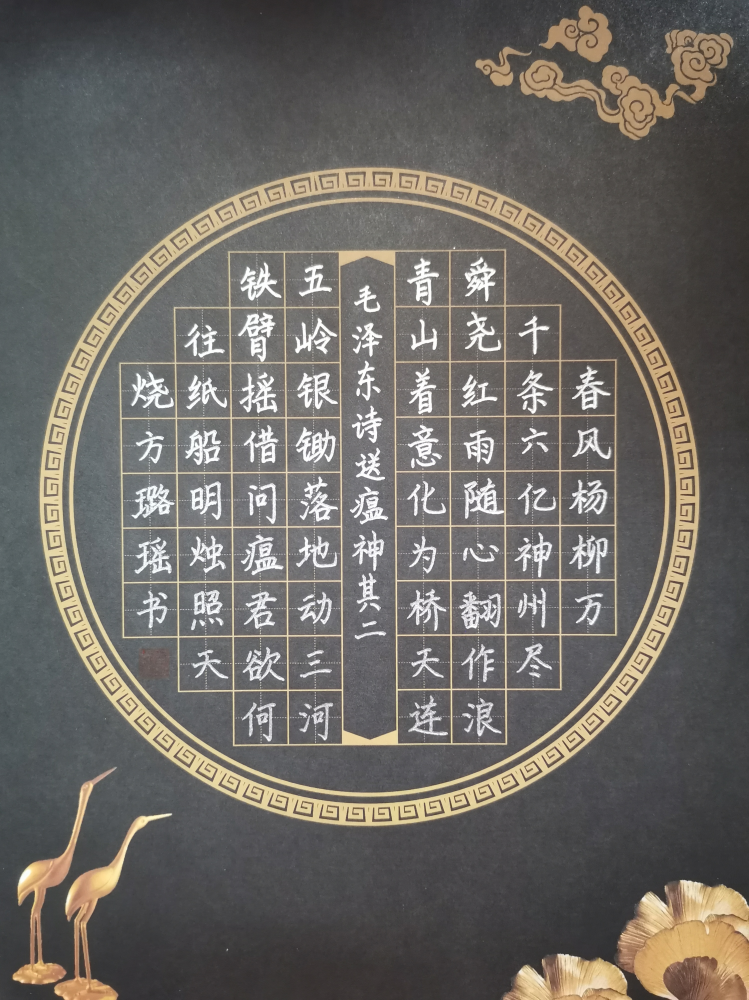 春风杨柳万
千条六亿神州尽
舜尧红雨随心翻作浪
青山着意化为桥天连
毛泽东诗送瘟神其二
五岭银锄落地动三河
铁臂摇借问瘟君欲何
往纸船明烛照天
烧方璐瑶书